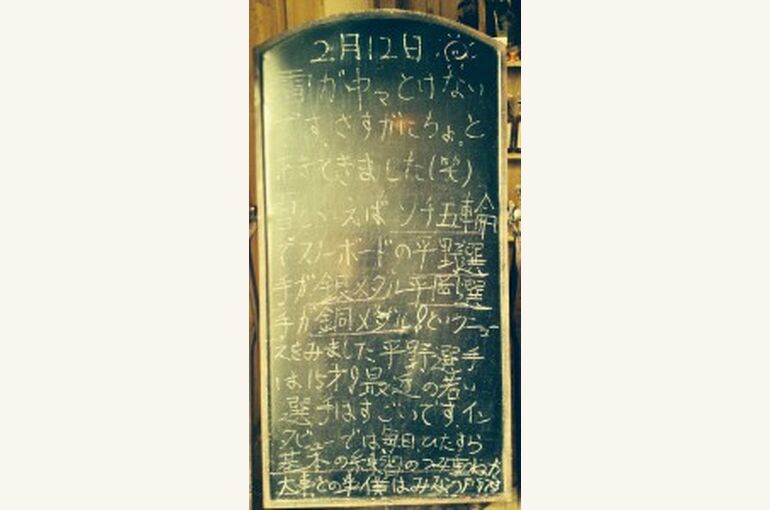 2月12日
雪が中々とけない
です、さすがにちょっと
あきてきました(笑)
雪といえばソチ五輪
でスノーボードの平野選
手が銀メダル平岡選
手が銅メダル!というニュー
スをみました、平野選手
は15才!最近の若い
選手はすごいです。イン
タビューでは毎日ひたすら
基本の練習のつみ重ねが
大事との事